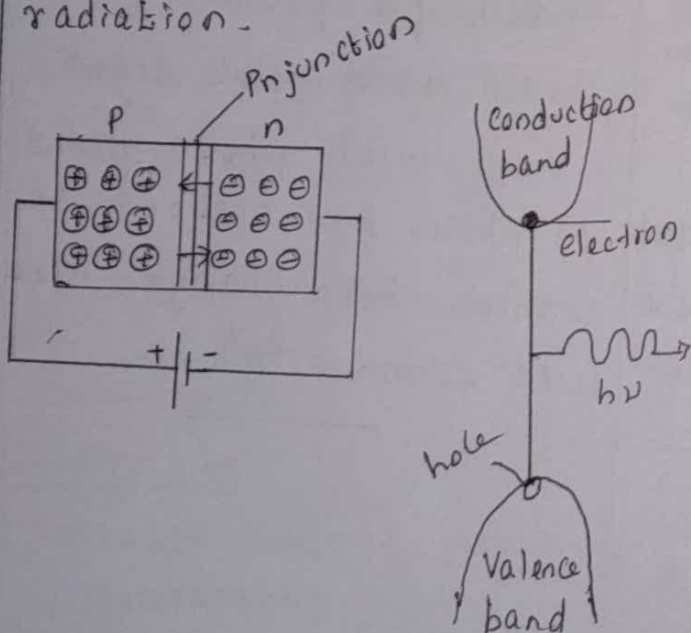 radiation.
Pnjunction
P
n
⊕ ⊕ ⊕ ⊖ ⊖ ⊖
⊕ ⊕ ⊕ ⊖ ⊖ ⊖
⊕ ⊕ ⊕ ⊖ ⊖ ⊖
+ -
Conduction
band
electron
hν
hole
Valence
band